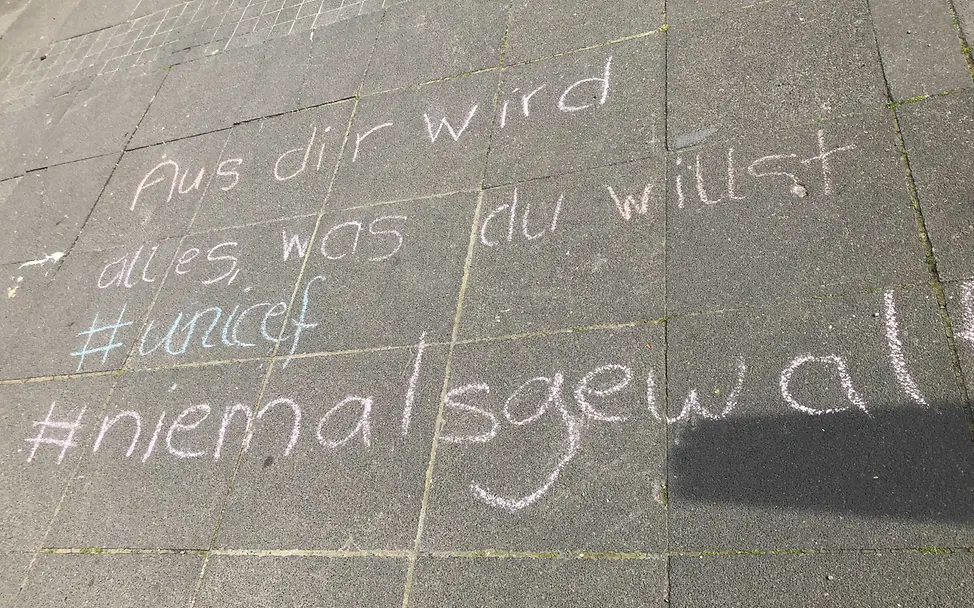 Aus dir wird
alles, was du willst
#unicef
#niemalsgewalt